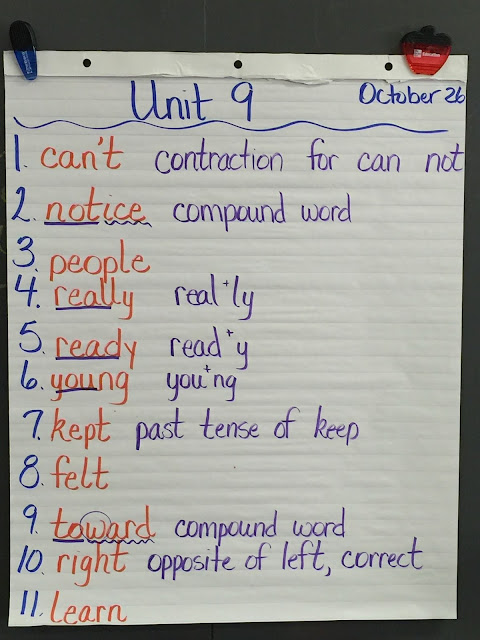 Unit 9 October 26
1. can't contraction for can not
2. notice compound word
3. people
4. really real+ly
5. ready read+y
6. young you+ng
7. kept past tense of keep
8. felt
9. toward compound word
10. right opposite of left, correct
11. learn